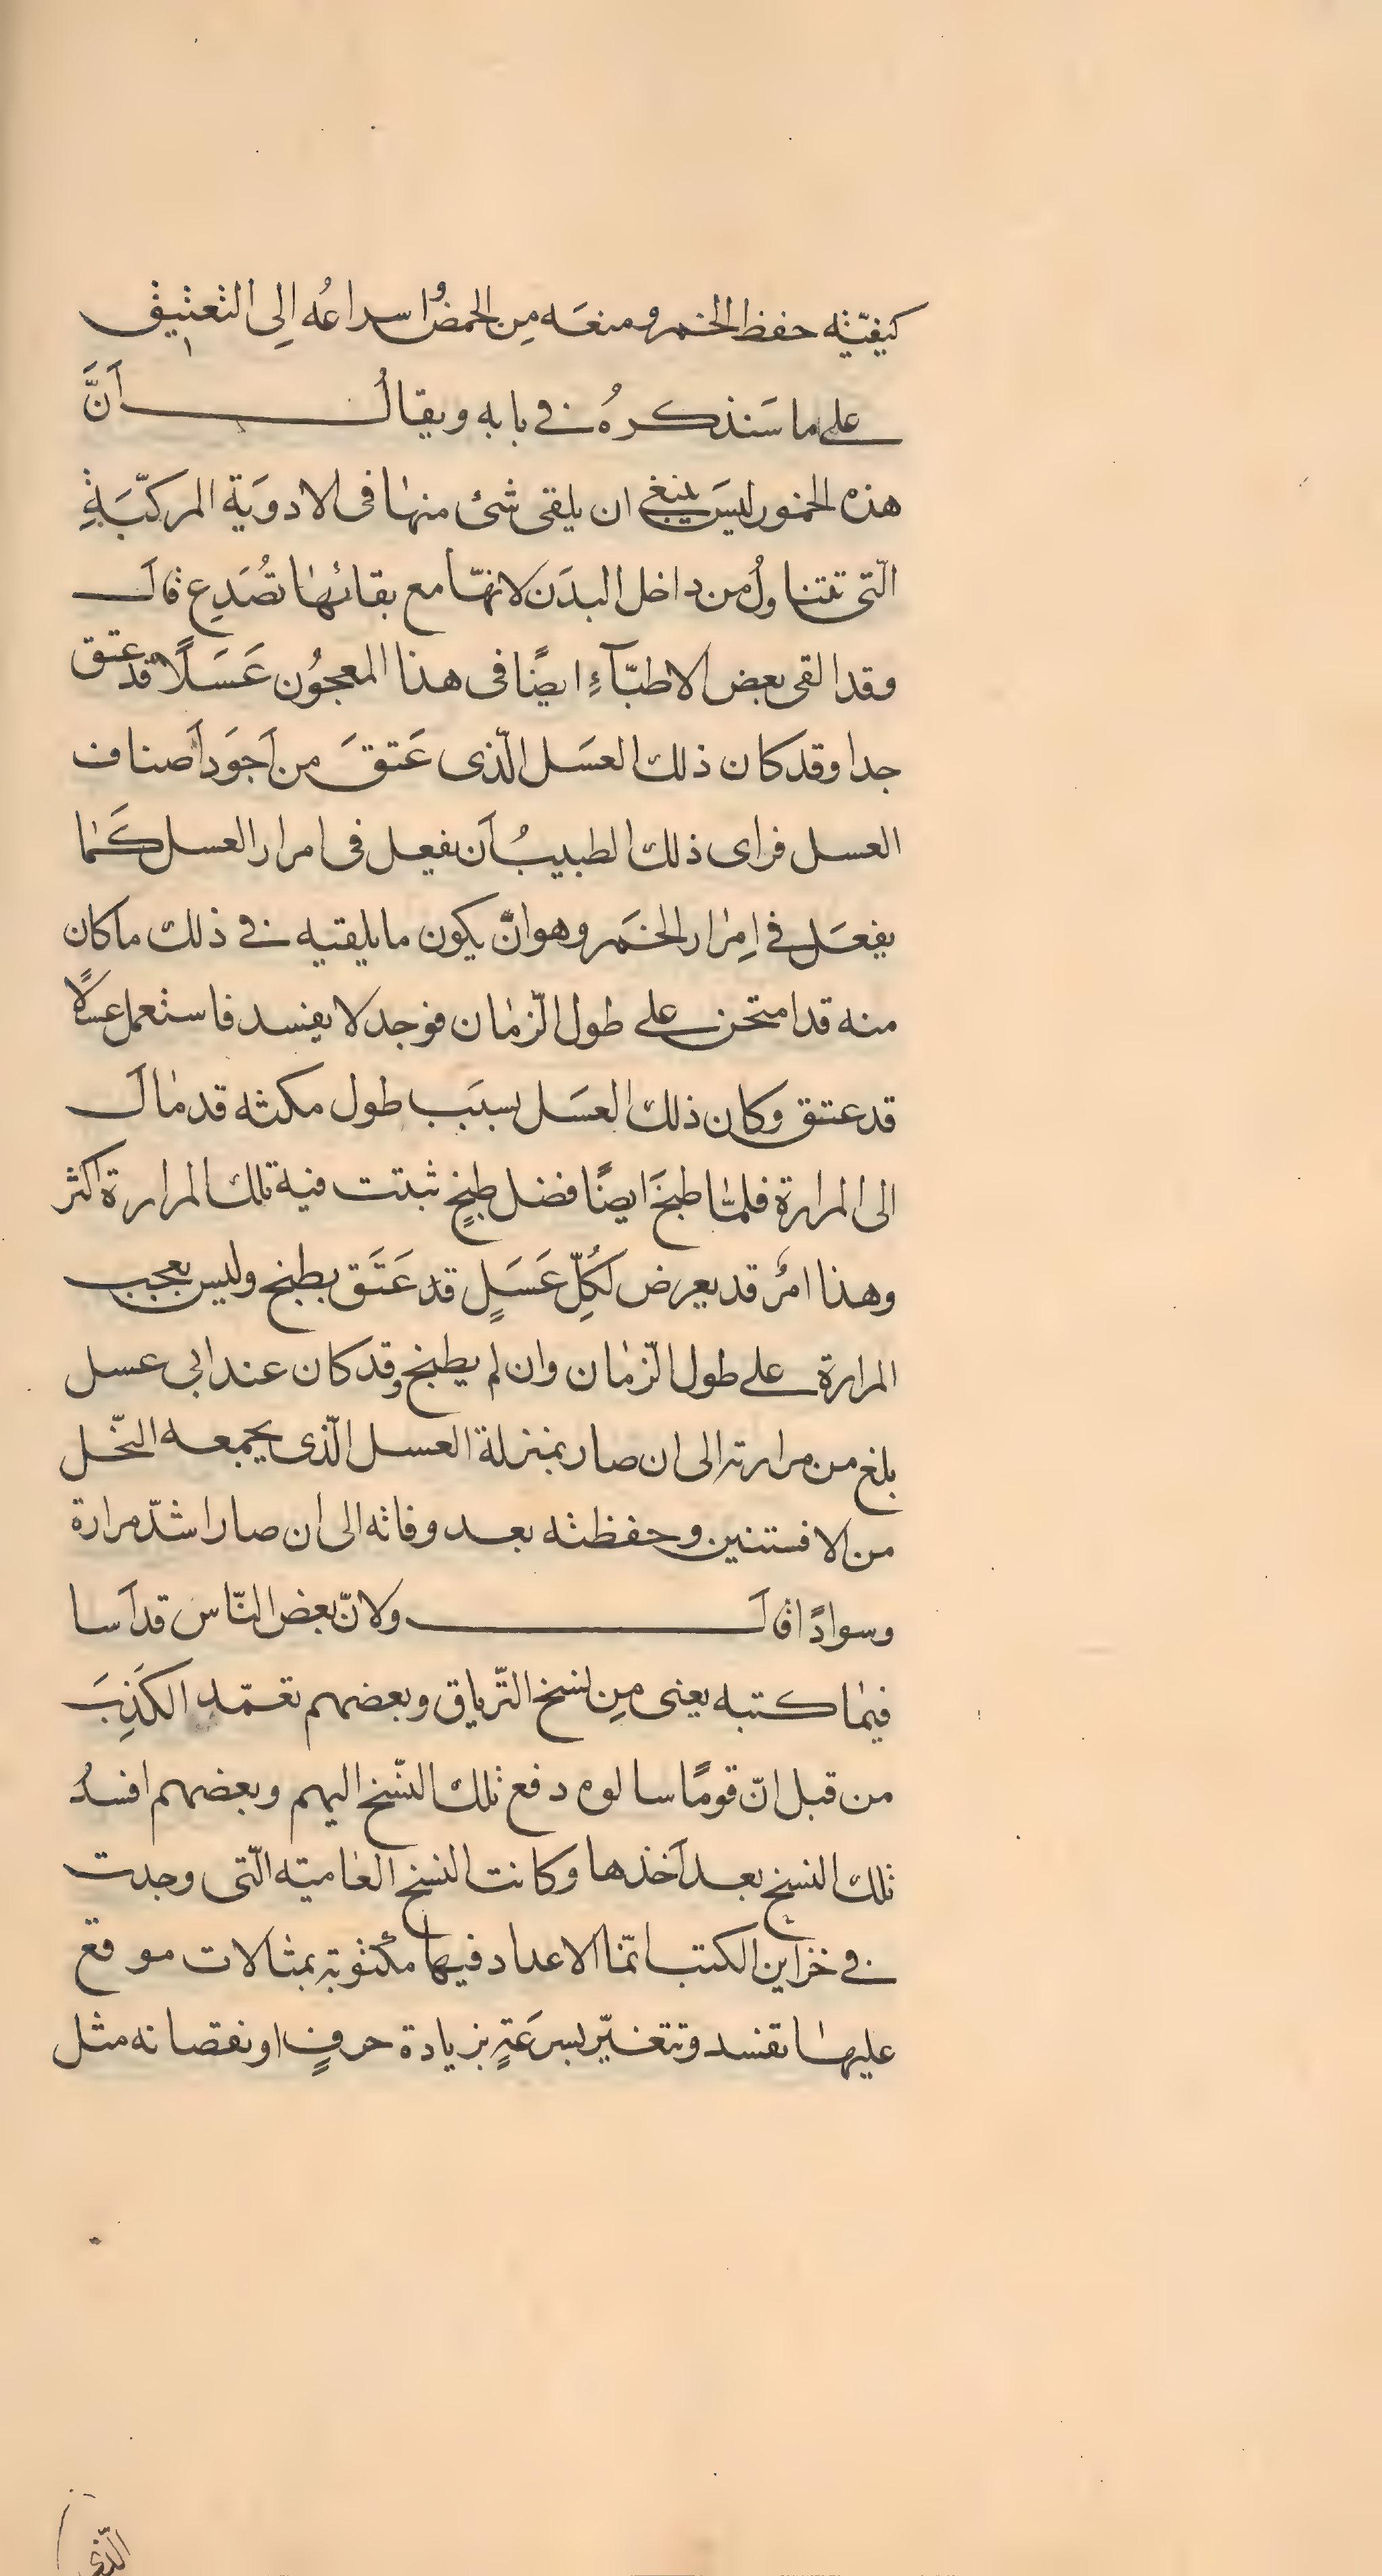 كيفيّته حفظ الخمر ومنعَه مِن الحمض واسراعُه اِلى التعتيق
على ما سَنذكرهُ فى بابه ويقالُ اَنَّ
هذه الخمور ليسَ ينبغى ان يلقى شئ منها فى الادوَية المركبّةِ
الّتى تتناولُ من داخل البدَن لانهّا مع بقائها تصُدِع قالَ
وقد القى بعض الاطبّآءِ ايضًا فى هذا المعجوُن عَسَلًا قد عتق
جدا وقد كان ذلك العسَل الّذى عَتقَ من اَجوَد اَصناف
العسل فراى ذلك الطبيبُ اَن يفعل فى امرار العسل كَما
يفعَل فى اِمرار الخمَر وهو انّ يكون ما يلقيه فى ذلك ما كان
منه قد امتحن على طول الزّمان فوجد لا يفسد فاستعمل عسلًا
قد عتق وكان ذلك العسَل بسبَب طول مكثه قد مالَ
الى المرارة فلمّا طبخَ ايضًا فضل طبخٍ ثبتت فيه تلك المرارة اكثر
وهذا امرٌ قد يعرض لكُلِّ عَسَلٍ قد عَتَق بطبخ وليس بعجب
المرارة على طول الزّمان وان لم يطبخ وقد كان عند ابى عسل
بلغ من مرارته الى ان صار بمنزلة العسل الّذى يجمعه النّحل
من الافستنين وحفظته بعد وفاته الى ان صار اشدّ مرارة
وسوادًا قالَ ولانّ بعض النّاس قد اَسا
فيما كتبه يعنى مِن نسخ التّرياق وبعضهم تعمّد الكَذِبَ
من قبل انّ قومًا سالوه دفع تلك النسّخ اليهم وبعضهم افسدُ
تلك النسخ بعد اَخذها وكانت النسخ العاميته الّتى وجدت
فى خزاين الكتب انمّا الاعداد فيها مكتوُبة بمثالات موقع
عليها تفسد وتتغيّر بسرعَةٍ بزيادة حرفٍ او نقصانه مثل
الّذى